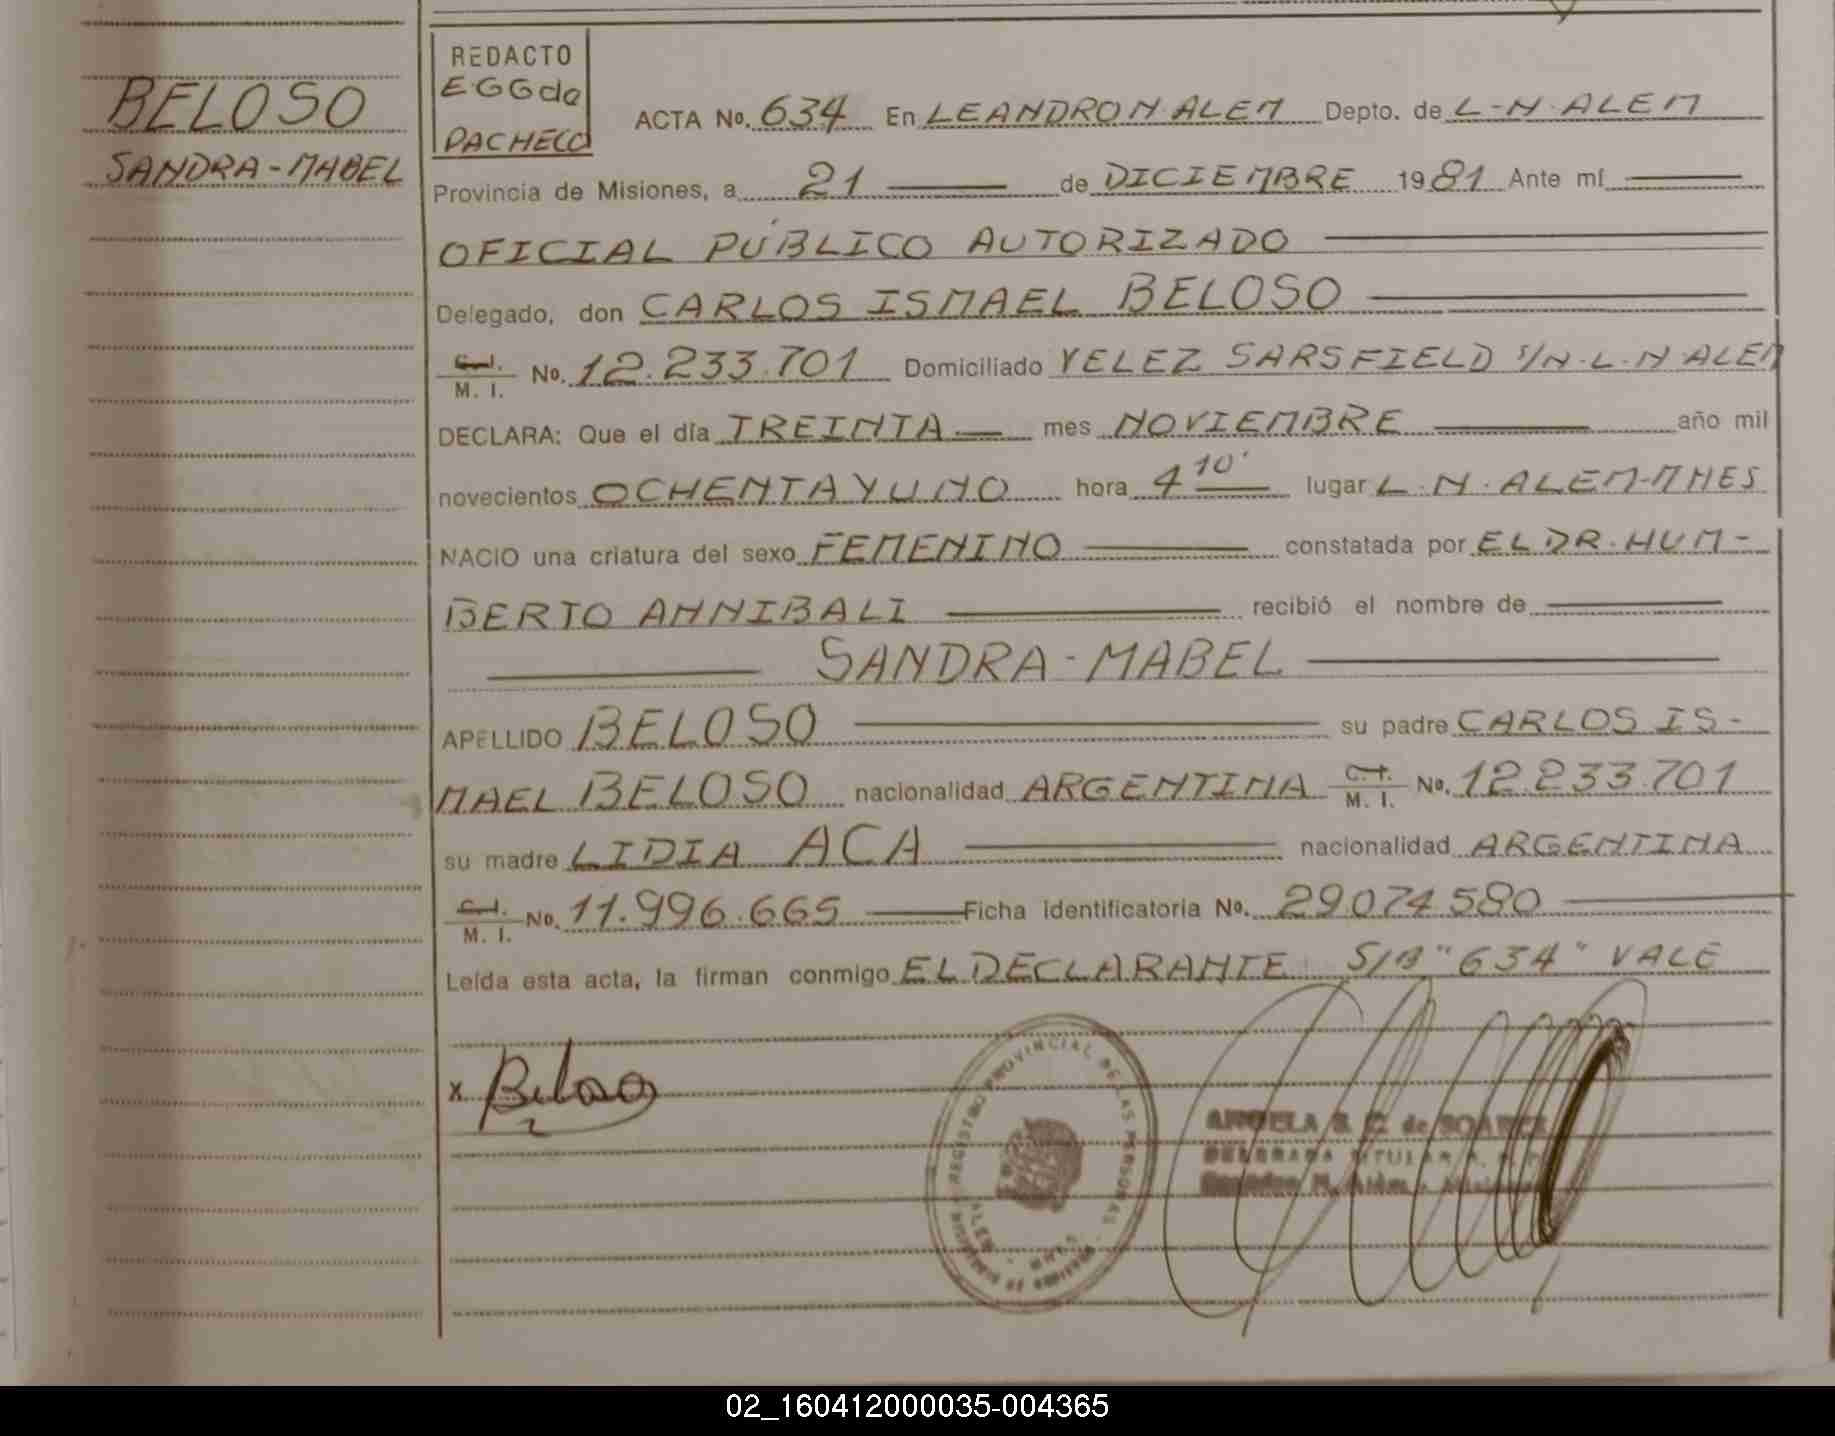 BELOSO
SANDRA-MABEL
REDACTO
EGGde
PACHECO
ACTA No. 634 En LEANDRO N ALEM Depto. de L-N-ALEM
Provincia de Misiones, a 21 de DICIEMBRE 1981 Ante mí
OFICIAL PÚBLICO AUTORIZADO
Delegado, don CARLOS ISMAEL BELOSO
C.I. M. I. No. 12.233.701 Domiciliado VELEZ SARSFIELD S/N-L-N-ALEM
DECLARA: Que el día TREINTA mes NOVIEMBRE año mil
novecientos OCHENTA Y UNO hora 4 10' lugar L.N.ALEM-MNES
NACIO una criatura del sexo FEMENINO constatada por EL DR. HUM-
BERTO ANNIBALI recibió el nombre de
SANDRA-MABEL
APELLIDO BELOSO su padre CARLOS IS-
MAEL BELOSO nacionalidad ARGENTINA C.I. M. I. No. 12.233.701
su madre LIDIA ACA nacionalidad ARGENTINA
C.I. M. I. No. 11.996.665 Ficha identificatoria No. 29.074.580
Leída esta acta, la firman conmigo EL DECLARANTE S/B "634" VALE
x Beloso
REGISTRO PROVINCIAL DE LAS PERSONAS
ANGELA S. C. de SOAREZ
DELEGADA TITULAR R. P. P.
Leandro N. Alem - Misiones
02_160412000035-004365